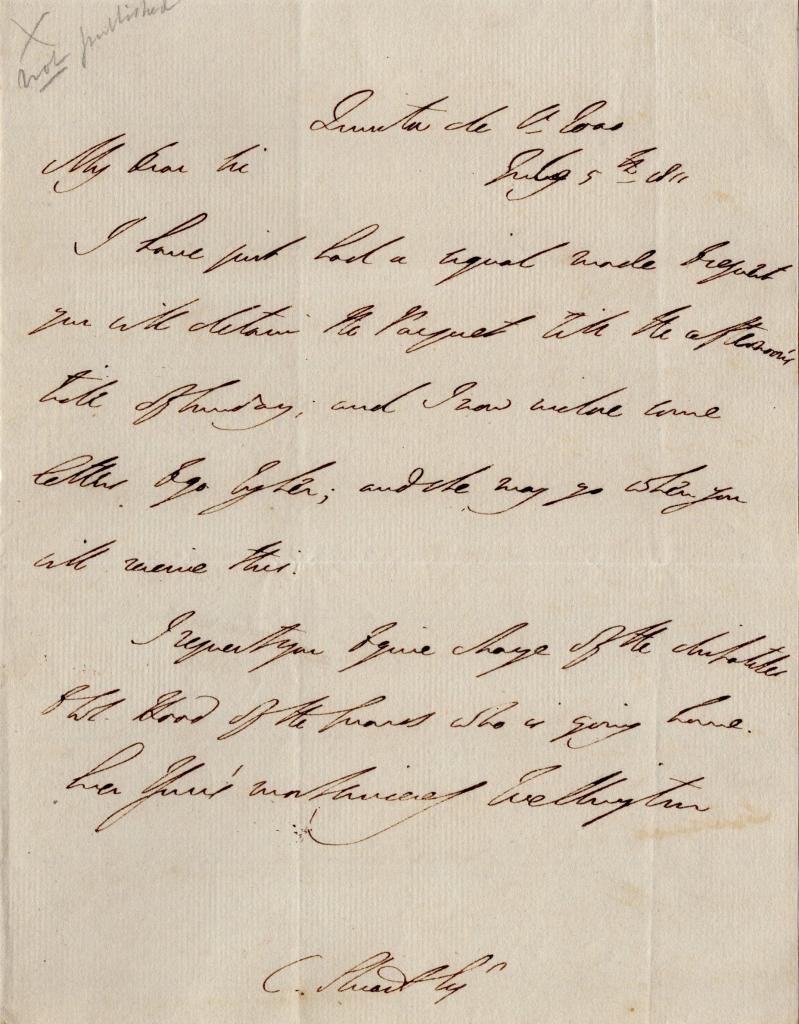 X
not published
Quinta de St. Joao
My Dear Sir
July 5th 1811
I have just had a signal made to request
you will detain the Pacquet till the afternoon's
tide of Sunday; and I now inclose some
letters to go by her; and she may go when you
will receive this.
I request you to give charge of the dispatches
to Lt. Hood of the Guards who is going home.
Ever Your's most sincerely Wellington
C. Stuart Esqr